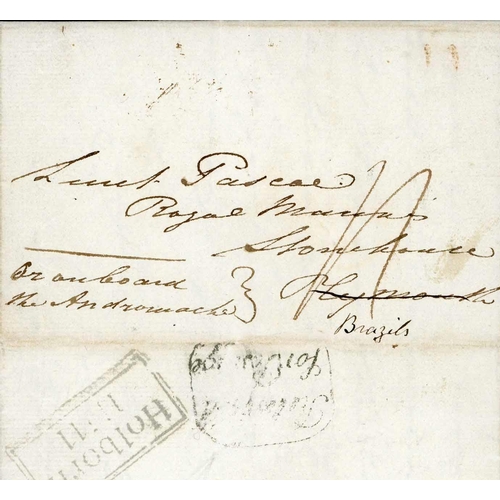 Lieut Pascoe.
Royal Marines
Stonehouse
Plymouth
Brazils
or onboard
the Andromache
Holborn